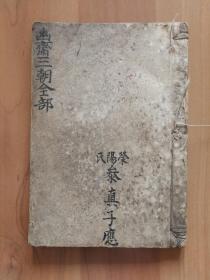 幽齋三朝全部
榮陽氏
真子應